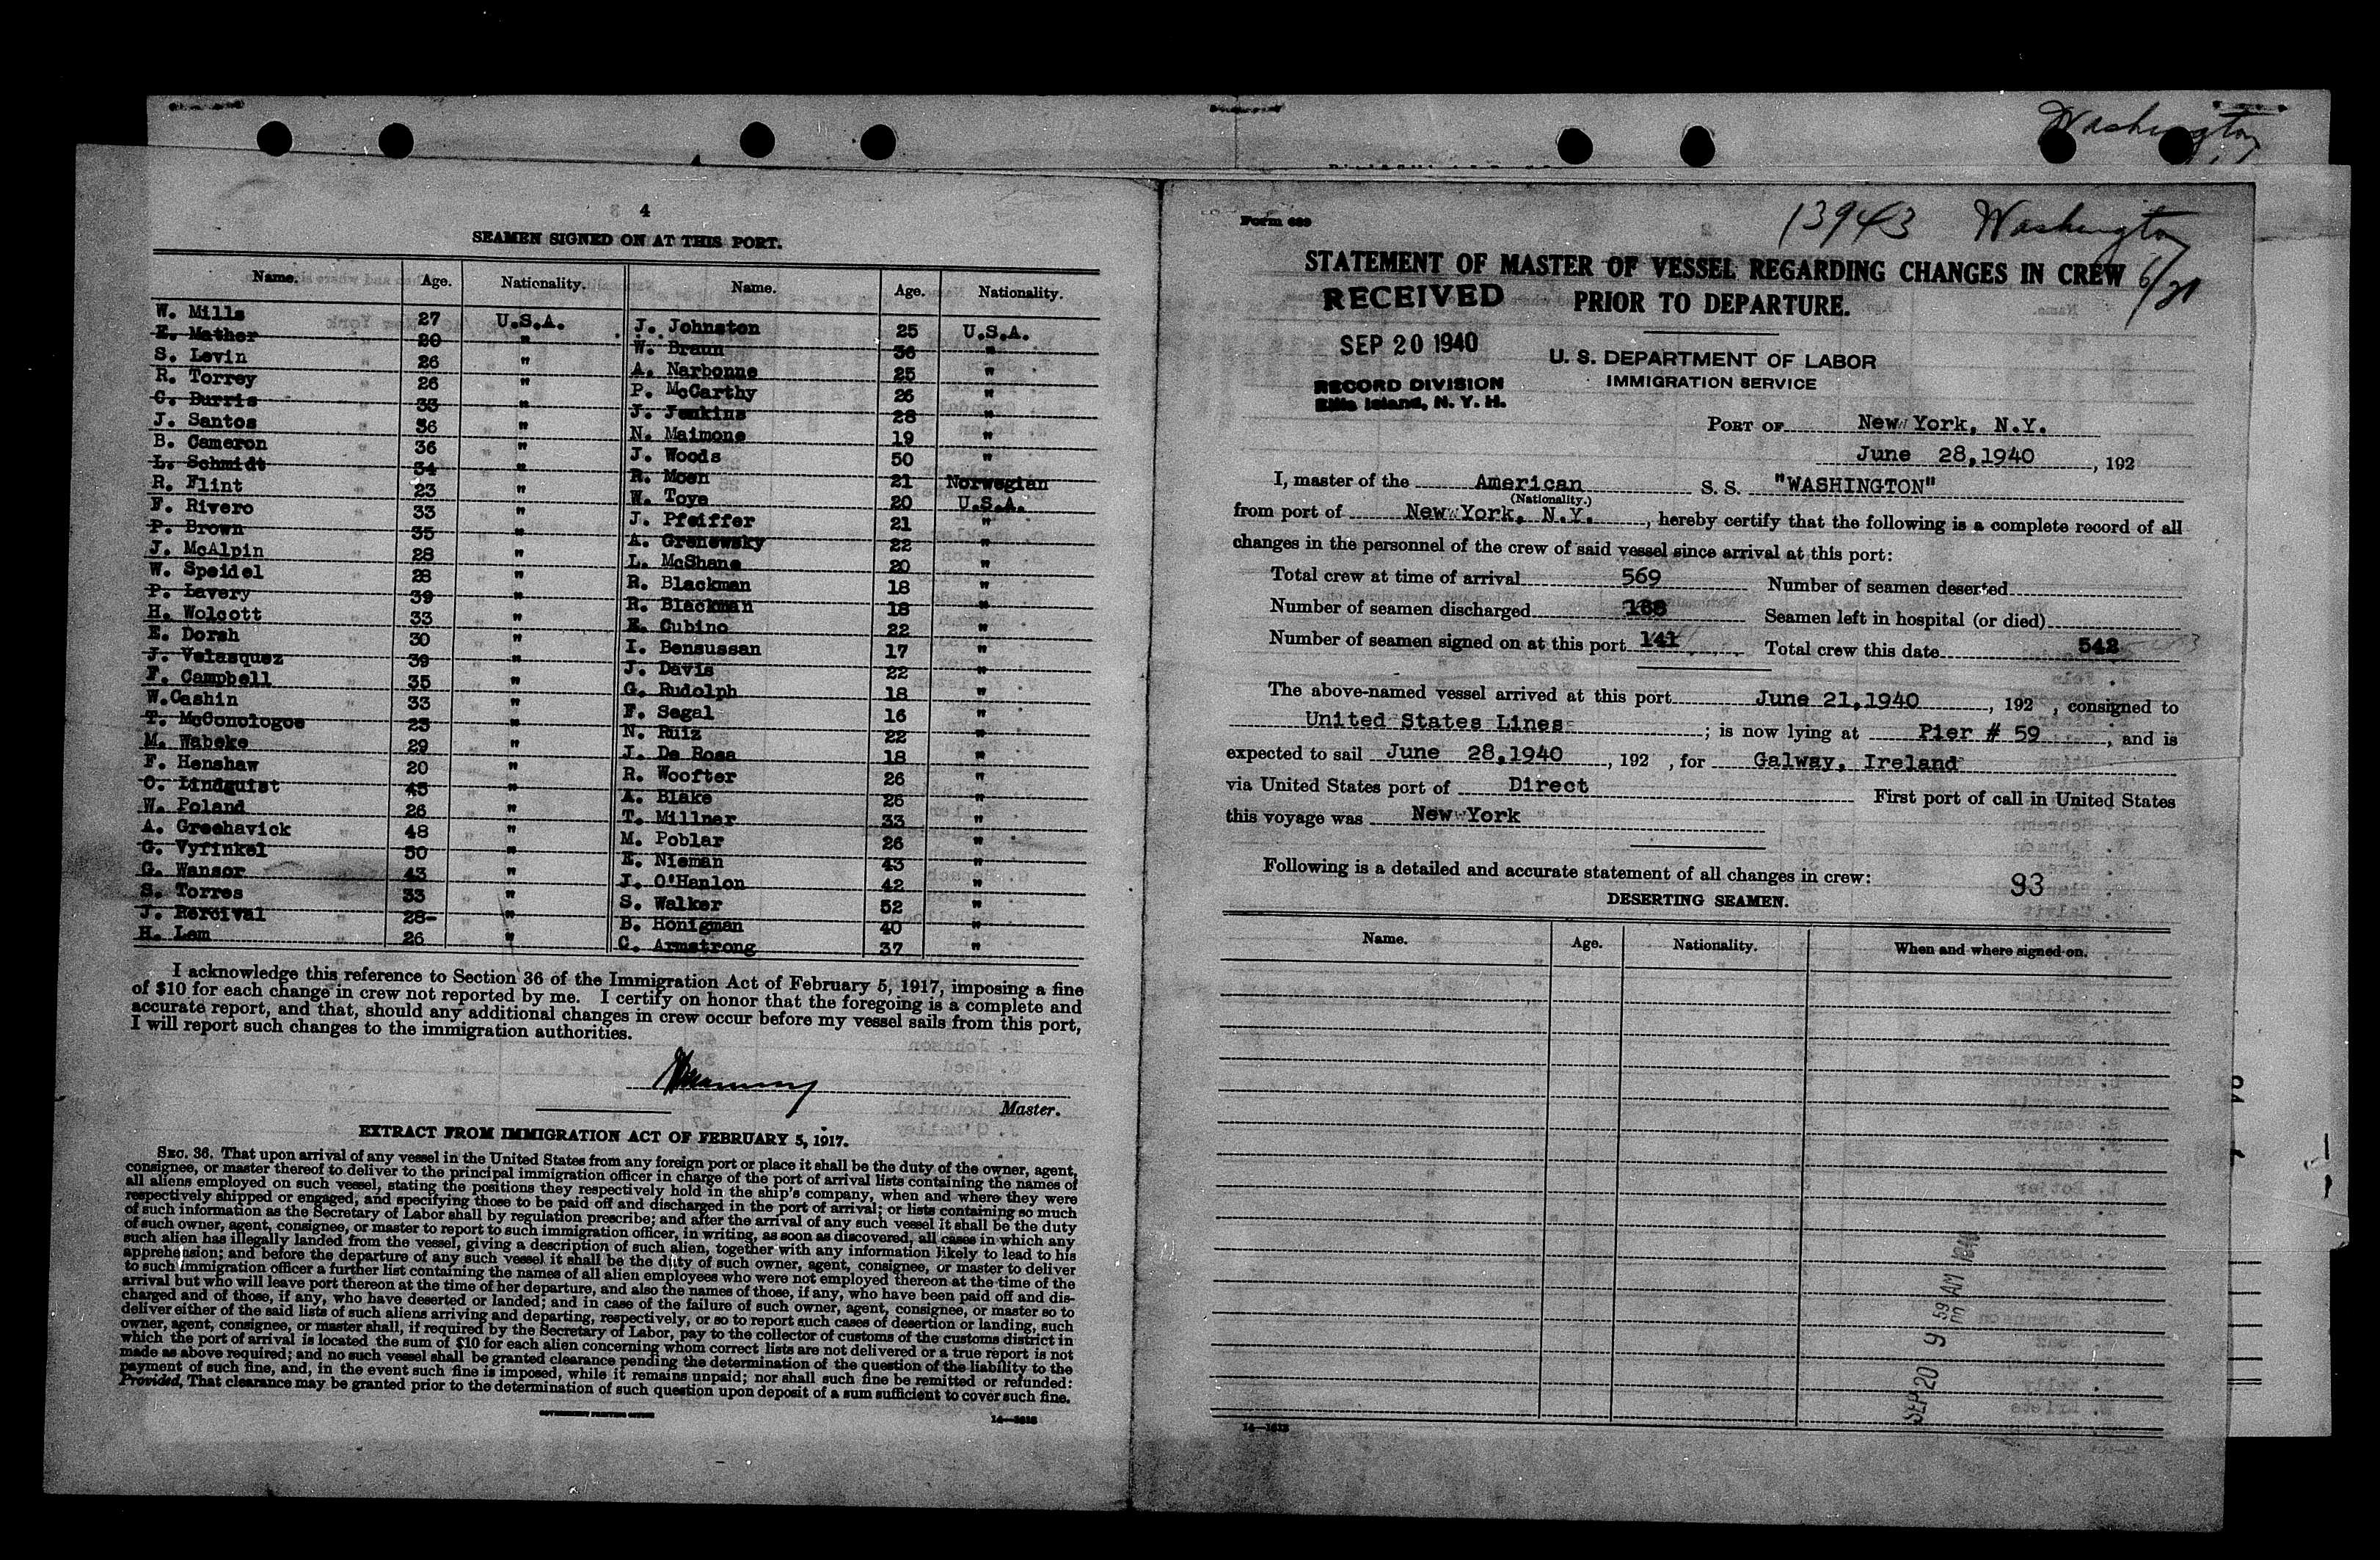 Washington
4
SEAMEN SIGNED ON AT THIS PORT.
Name. Age. Nationality. Name. Age. Nationality.
W. Mills 27 U.S.A. J. Johnston 25 U.S.A.
E. Mather 20 " W. Braun 36 "
S. Levin 26 " A. Narbonne 25 "
R. Torrey 26 " P. McCarthy 26 "
C. Burris 33 " J. Jenkins 28 "
J. Santos 36 " N. Maimone 19 "
B. Cameron 36 " J. Woods 50 "
L. Schmidt 34 " R. Moen 21 Norwegian
R. Flint 23 " W. Toye 20 U.S.A.
F. Rivero 33 " J. Pfeiffer 21 "
P. Brown 35 " A. Grenewsky 22 "
J. McAlpin 28 " L. McShane 20 "
W. Speidel 28 " R. Blackman 18 "
P. Lavery 39 " R. Blackman 18 "
H. Wolcott 33 " E. Cubino 22 "
E. Dorsh 30 " I. Bensussan 17 "
J. Velasquez 39 " J. Davis 22 "
F. Campbell 35 " G. Rudolph 18 "
W.Cashin 33 " F. Segal 16 "
T. McConologoe 23 " N. Ruiz 22 "
M. Wabeke 29 " J. De Rosa 18 "
F. Henshaw 20 " R. Woofter 26 "
O. Lindquist 45 " A. Blake 26 "
W. Poland 26 " T. Millner 33 "
A. Greehavick 48 " M. Poblar 26 "
G. Vyfinkel 50 " E. Nieman 43 "
G. Wansor 43 " J. O'Hanlon 42 "
S. Torres 33 " S. Walker 52 "
J. Percival 28 " B. Honigman 40 "
H. Lem 26 " C. Armstrong 37 "
I acknowledge this reference to Section 36 of the Immigration Act of February 5, 1917, imposing a fine
of $10 for each change in crew not reported by me. I certify on honor that the foregoing is a complete and
accurate report, and that, should any additional changes in crew occur before my vessel sails from this port,
I will report such changes to the immigration authorities.
Master.
EXTRACT FROM IMMIGRATION ACT OF FEBRUARY 5, 1917.
SEC. 36. That upon arrival of any vessel in the United States from any foreign port or place it shall be the duty of the owner, agent,
consignee, or master thereof to deliver to the principal immigration officer in charge of the port of arrival lists containing the names of
all aliens employed on such vessel, stating the positions they respectively hold in the ship's company, when and where they were
respectively shipped or engaged, and specifying those to be paid off and discharged in the port of arrival; or lists containing so much
of such information as the Secretary of Labor shall by regulation prescribe; and after the arrival of any such vessel it shall be the duty
of such owner, agent, consignee, or master to report to such immigration officer, in writing, as soon as discovered, all cases in which any
such alien has illegally landed from the vessel, giving a description of such alien, together with any information likely to lead to his
apprehension; and before the departure of any such vessel it shall be the duty of such owner, agent, consignee, or master to deliver
to such immigration officer a further list containing the names of all alien employees who were not employed thereon at the time of the
arrival but who will leave port thereon at the time of her departure, and also the names of those, if any, who have been paid off and dis-
charged and of those, if any, who have deserted or landed; and in case of the failure of such owner, agent, consignee, or master so to
deliver either of the said lists of such aliens arriving and departing, respectively, or so to report such cases of desertion or landing, such
owner, agent, consignee, or master shall, if required by the Secretary of Labor, pay to the collector of customs of the customs district in
which the port of arrival is located the sum of $10 for each alien concerning whom correct lists are not delivered or a true report is not
made as above required; and no such vessel shall be granted clearance pending the determination of the question of the liability to the
payment of such fine, and, in the event such fine is imposed, while it remains unpaid; nor shall such fine be remitted or refunded:
Provided, That clearance may be granted prior to the determination of such question upon deposit of a sum sufficient to cover such fine.
GOVERNMENT PRINTING OFFICE 14—1613
Form 689
13943 Washington
6/21
STATEMENT OF MASTER OF VESSEL REGARDING CHANGES IN CREW
PRIOR TO DEPARTURE.
RECEIVED
SEP 20 1940
RECORD DIVISION
Ellis Island, N. Y. H.
U. S. DEPARTMENT OF LABOR
IMMIGRATION SERVICE
PORT OF New York, N.Y.
June 28,1940, 192
I, master of the American S. S. "WASHINGTON"
(Nationality.)
from port of New York, N.Y., hereby certify that the following is a complete record of all
changes in the personnel of the crew of said vessel since arrival at this port:
Total crew at time of arrival 569 Number of seamen deserted
Number of seamen discharged 168 Seamen left in hospital (or died)
Number of seamen signed on at this port 141 Total crew this date 542
The above-named vessel arrived at this port June 21,1940, 192 , consigned to
United States Lines ; is now lying at Pier # 59, and is
expected to sail June 28,1940, 192 , for Galway, Ireland
via United States port of Direct First port of call in United States
this voyage was New York
Following is a detailed and accurate statement of all changes in crew:
93
DESERTING SEAMEN.
Name. Age. Nationality. When and where signed on.
SEP 20 9 59 AM 1940
14—1613